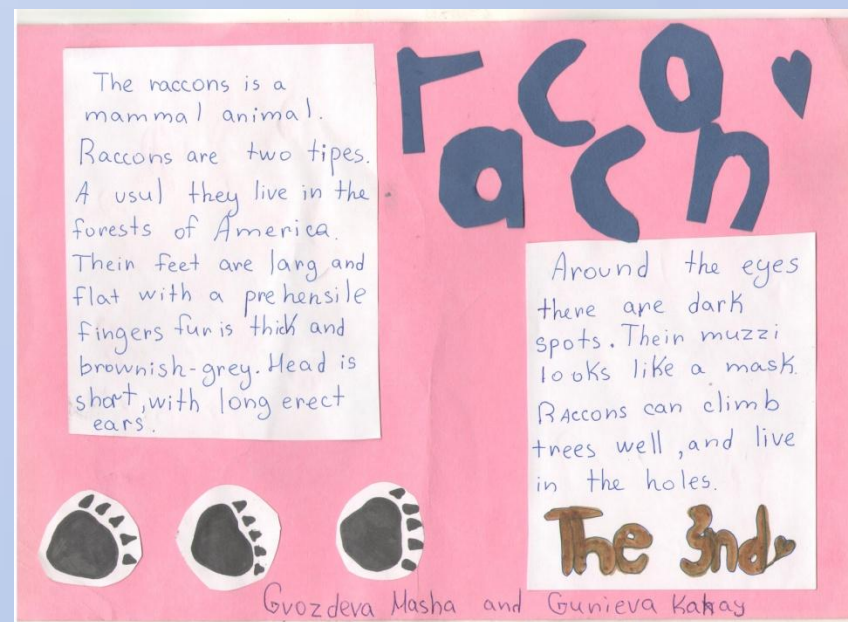 raccon
The raccons is a
mammal animal.
Raccons are two tipes.
A usul they live in the
forests of America.
Thein feet are lang and
flat with a prehensile
fingers fur is thick and
brownish-grey. Head is
short, with long erect
ears.
Around the eyes
there are dark
spots. Thein muzzi
looks like a mask.
RAccons can climb
trees well, and live
in the holes.
The End
Gvozdeva Masha and Gunieva